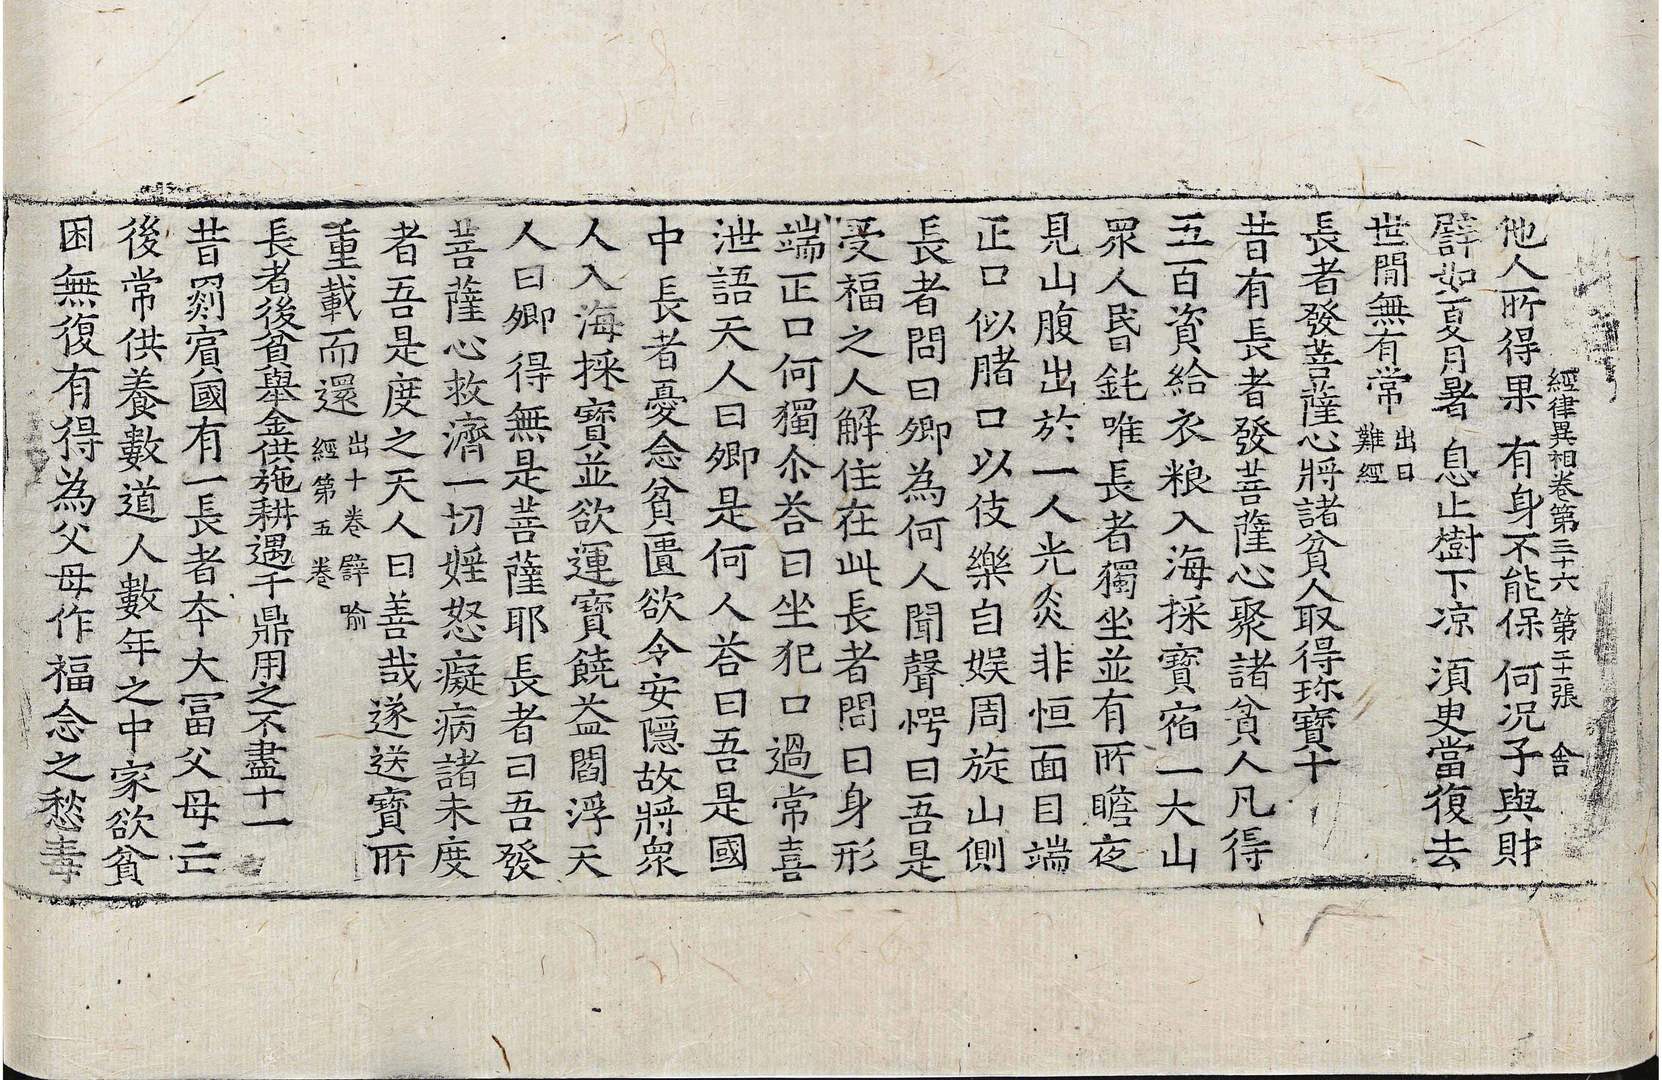 經律異相卷第三十六 第二十二張 舍
他人所得果有身不能保何况子與財
譬如夏月暑息止樹下凉須臾當復去
世間無有常出曰難經
長者發菩薩心將諸貧人取得珎寶十
昔有長者發菩薩心聚諸貧人凡得
五百資給衣粮入海採寶宿一大山
眾人昬鈍唯長者獨坐並有所瞻夜
見山腹出於一人光炎非恒面目端
正口似賭口以伎樂自娱周旋山側
長者問曰卿為何人聞聲愕曰吾是
受福之人解住在此長者問曰身形
端正口何獨尒荅曰坐犯口過常喜
泄語天人曰卿是何人荅曰吾是國
中長者憂念貧匱欲令安隱故將眾
人入海採寶並欲運寶饒益閻浮天
人曰卿得無是菩薩耶長者曰吾發
菩薩心救濟一切婬怒癡病諸未度
者吾是度之天人曰善哉遂送寶所
重載而還出十卷譬喻經第五卷
長者後貧舉金供施耕遇千鼎用之不盡十一
昔罽賓國有一長者本大冨父母亡
後常供養數道人數年之中家欲貧
困無復有得為父母作福念之愁毒